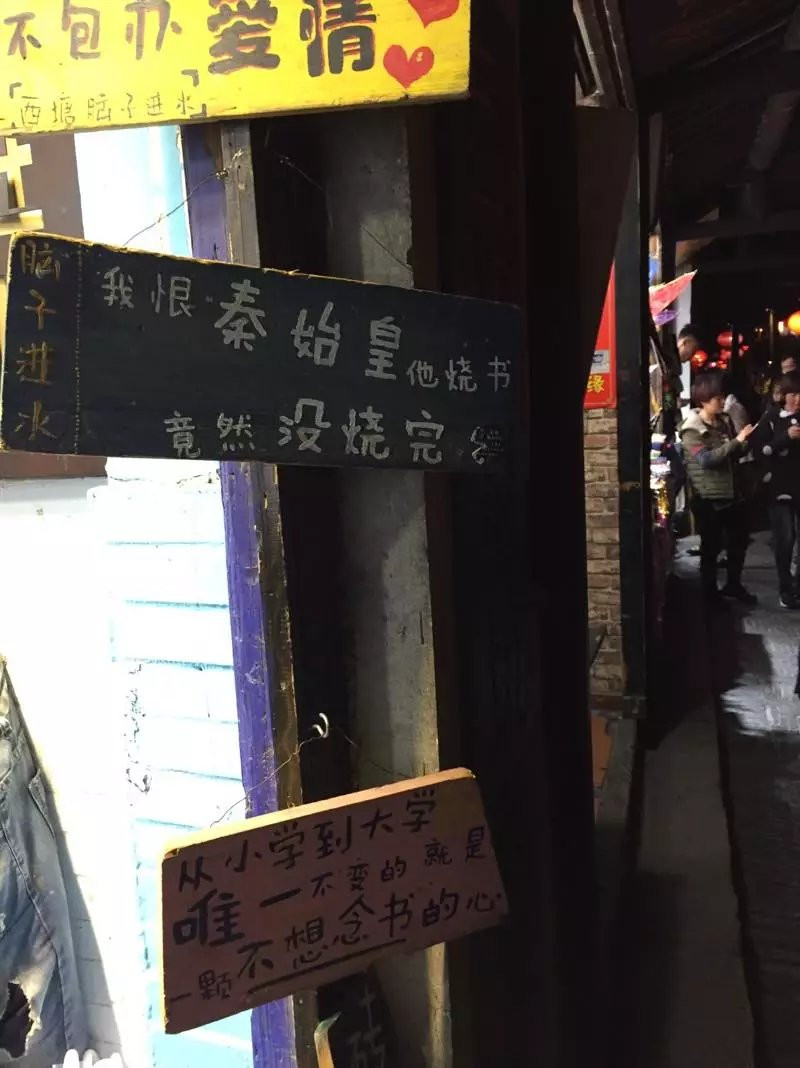 不包办愛情
「西塘脑子进水」
脑子进水
我恨秦始皇他烧书
竟然没烧完
缘
从小学到大学
唯一不变的就是
一颗不想念书的心